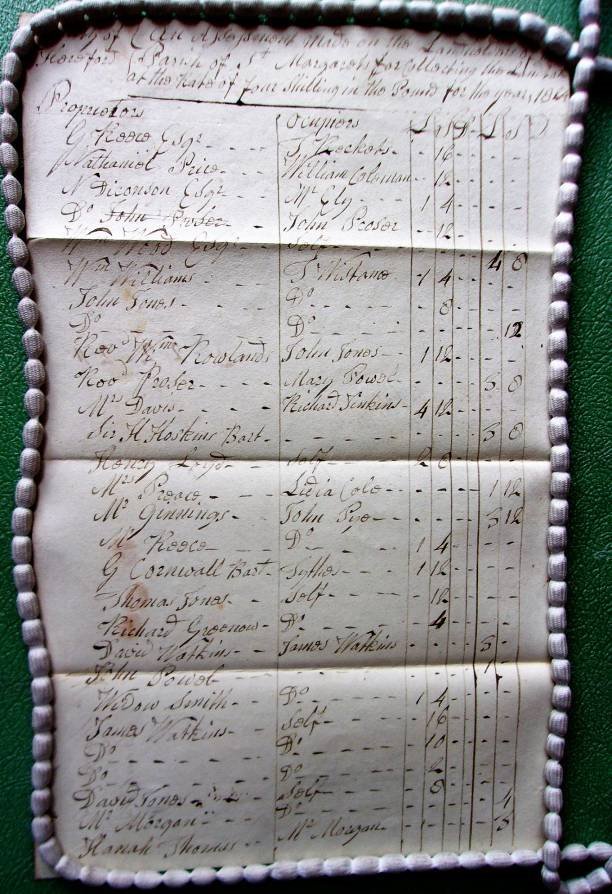 of an Assessment made on the
Hereford Parish of St Margarets for Collecting the
at the Rate of four Shilling in the Pound for the year
Proprietors Occupiers £ S D £ S D
G Reece Esqr - - - - 16
Nathaniel Price - - - William Coleman - 12
N Diconson Esqr - - - Mr Ely - - - 1 4
Do John Proser - - - John Proser - 12
Wm Wood Esqr - - - Self - - - 4 8
Wm Williams - - - - 1 4
John Jones - - - Do - - - 8
Do - - - Do - - - 12
Revd Wm Rowlands John Jones - - - 1 12
Roo Proser - - - Mary Powel - - - 3 8
Mrs Davis - - - Richard Jinkins - 4 12
Sir H Hoskins Bart - - - - 3 8
Henry Loyd - - - Self - - - 2 8
Mrs Preace - - - Lidia Cole - - - 1 12
Mr Ginnings - - - John Pye - - - 3 12
Mr Reece - - - Do - - - 1 4
G Cornwall Bart - Sythes - - - 1 12
Thomas Jones - - - Self - - - 12
Richard Greenow - - Do - - - 4
David Watkins - - - James Watkins - - - 3
John Powel - - - 1
Widow Smith - - - Do - - - 1 4
James Watkins - - - Self - - - 16
Do - - - Do - - - 10
Do - - - Do - - - 2
David Jones - - - Self - - - 8
Mr Morgan - - - Do - - - 4
Hanah Thomas - - - Mr Morgan - - - 1 3